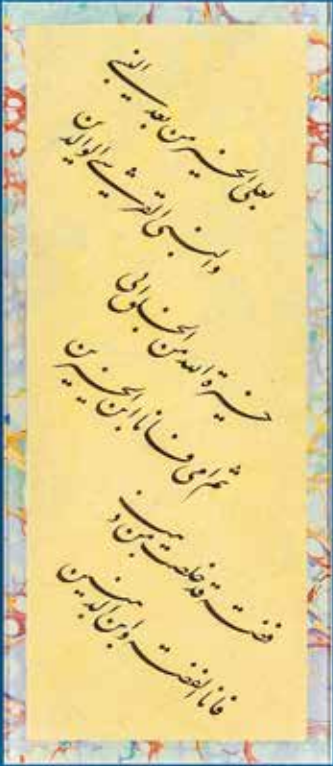 بعلی الخیر من بعد النبی
والنبی القرشی الوالدین
خیرة الله من الخلق ابی
ثم امی فانا ابن الخیرین
فضة قد خلصت من ذهب
فانا الفضة وابن الذهبین